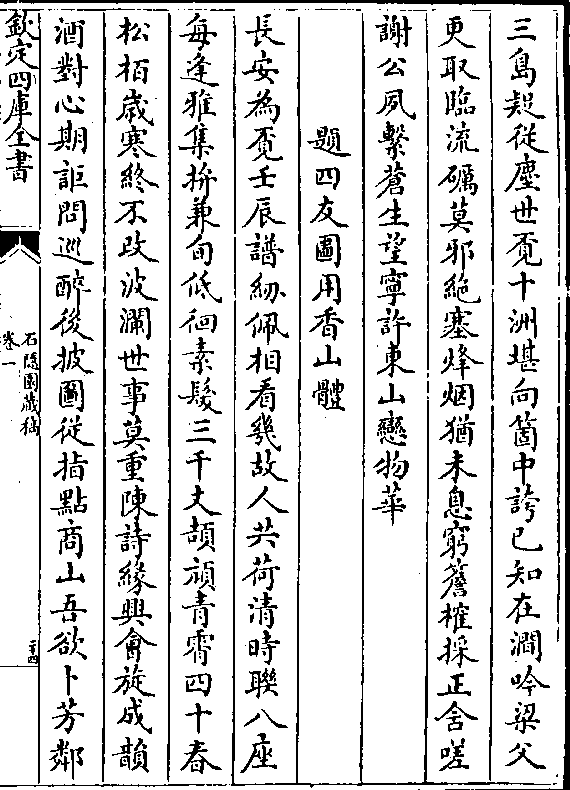 三島疑從塵世覓十洲堪向箇中誇已知在澗吟梁父
更取臨流礪莫邪絶塞烽烟猶未息窮簷榷採正舍嗟
謝公夙繫蒼生望寧許東山戀物華
題四友圖用香山體
長安為覓壬辰譜紉佩相看幾故人共荷清時聯八座
每逢雅集拚兼旬低徊素髮三千丈頡頏青霄四十春
松栢歲寒終不改波瀾世事莫重陳詩緣興會旋成韻
酒對心期詎問巡醉後披圖從指點商山吾欲卜芳鄰
欽定四庫全書
石隱園藏稿
卷一
二十四